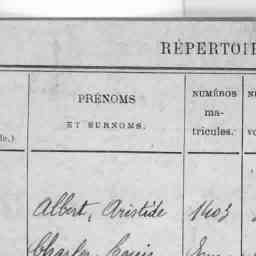 RÉPERTOI
PRÉNOMS
ET SURNOMS.
NUMÉROS
ma-
tricules.
de.)
Albert, Aristide 1403
Charles Louis